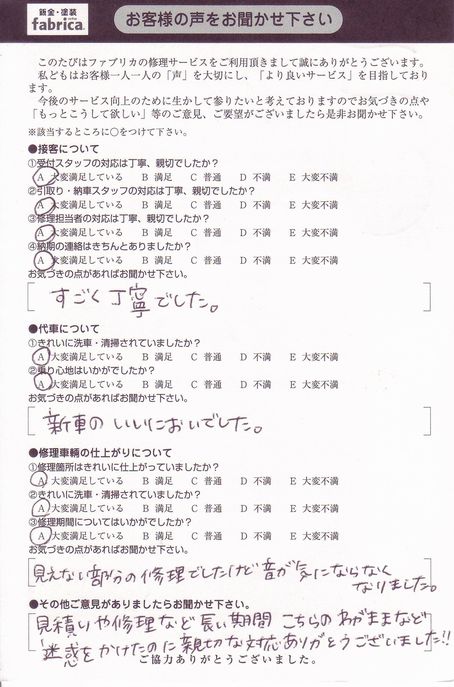 鈑金・塗装
fabrica.
お客様の声をお聞かせ下さい
このたびはファブリカの修理サービスをご利用頂きまして誠にありがとうございます。
私どもはお客様一人一人の「声」を大切にし、「より良いサービス」を目指しており
ます。
今後のサービス向上のために生かして参りたいと考えておりますのでお気づきの点や
「もっとこうして欲しい」等のご意見、ご要望がございましたら是非お聞かせ下さい。
※該当するところに○をつけて下さい。
●接客について
①受付スタッフの対応は丁寧、親切でしたか?
A 大変満足している B 満足 C 普通 D 不満 E 大変不満
②引取り・納車スタッフの対応は丁寧、親切でしたか?
A 大変満足している B 満足 C 普通 D 不満 E 大変不満
③修理担当者の対応は丁寧、親切でしたか?
A 大変満足している B 満足 C 普通 D 不満 E 大変不満
④納期の連絡はきちんとありましたか?
A 大変満足している B 満足 C 普通 D 不満 E 大変不満
お気づきの点があればお聞かせ下さい。
すごく丁寧でした。
●代車について
①きれいに洗車・清掃されていましたか?
A 大変満足している B 満足 C 普通 D 不満 E 大変不満
②乗り心地はいかがでしたか?
A 大変満足している B 満足 C 普通 D 不満 E 大変不満
お気づきの点があればお聞かせ下さい。
新車のいいにおいでした。
●修理車輌の仕上がりについて
①修理箇所はきれいに仕上がっていましたか?
A 大変満足している B 満足 C 普通 D 不満 E 大変不満
②きれいに洗車・清掃されていましたか?
A 大変満足している B 満足 C 普通 D 不満 E 大変不満
③修理期間についてはいかがでしたか?
A 大変満足している B 満足 C 普通 D 不満 E 大変不満
お気づきの点があればお聞かせ下さい。
見えない部分の修理でしたけど音が気にならなく
なりました。
●その他ご意見がありましたらお聞かせ下さい。
見積りや修理など長い期間こちらのわがままなど
迷惑をかけたのに親切な対応ありがとうございました!!
ご協力ありがとうございました。